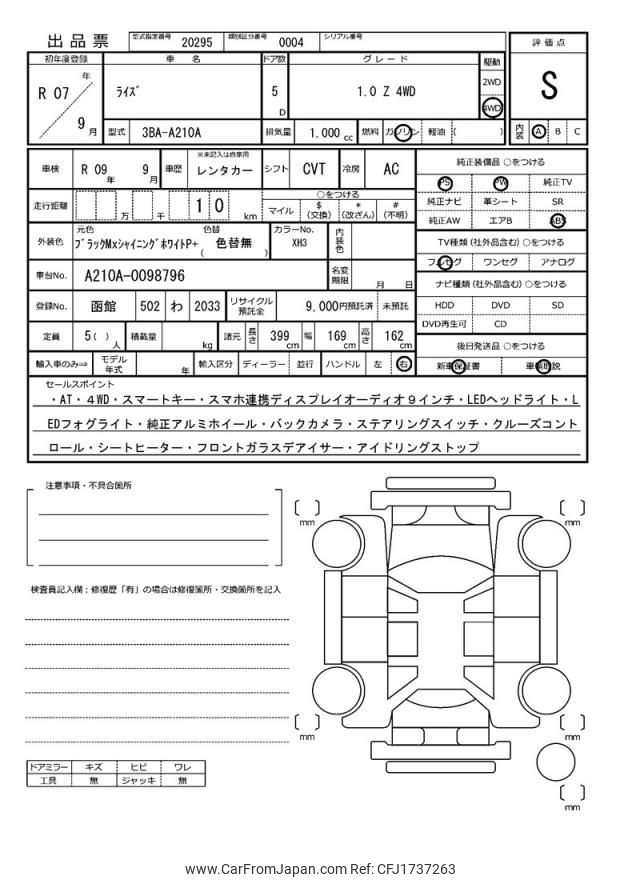 出品票 型式指定番号 20295 類別区分番号 0004 シリアル番号
評価点
S
内装 A B C
初年度登録 車名 ドア数 グレード 駆動
R 07 年 9 月 ﾗｲｽﾞ 5 D 1.0 Z 4WD 2WD 4WD
型式 3BA-A210A 排気量 1.000 cc 燃料 ガソリン 軽油 ( )
車検 R 09 年 9 月 車歴 ※未記入は自家用 レンタカー シフト CVT 冷房 AC
走行距離 万 千 1 0 km ○をつける
マイル $(交換) *(改ざん) #(不明)
外装色 元色 ﾌﾞﾗｯｸMxｼｬｲﾆﾝｸﾞﾎﾜｲﾄP+ 色替 ( 色替無 ) カラーNo. XH3 内装色
車台No. A210A-0098796 名変期限 月 日
登録No. 函館 502 わ 2033 リサイクル預託金 9,000円預託済 未預託
定員 5( ) 人 積載量 kg 諸元 長さ 399 cm 幅 169 cm 高さ 162 cm
輸入車のみ⇒ モデル年式 年 輸入区分 ディーラー 並行 ハンドル 左 右
純正装備品 ○をつける
PS PW 純正TV
純正ナビ 革シート SR
純正AW エアB ABS
TV種類 (社外品含む) ○をつける
フルセグ ワンセグ アナログ
ナビ種類 (社外品含む) ○をつける
HDD DVD SD
DVD再生可 CD
後日発送品 ○をつける
新車保証書 車輌取説
セールスポイント
・AT・4WD・スマートキー・スマホ連携ディスプレイオーディオ９インチ・LEDヘッドライト・L
EDフォグライト・純正アルミホイール・バックカメラ・ステアリングスイッチ・クルーズコント
ロール・シートヒーター・フロントガラスデアイサー・アイドリングストップ
注意事項・不具合箇所
検査員記入欄：修復歴「有」の場合は修復箇所・交換箇所を記入
mm mm
mm mm
mm
ドアミラー キズ ヒビ ワレ
工具 無 ジャッキ 無
www.CarFromJapan.com Ref: CFJ1737263